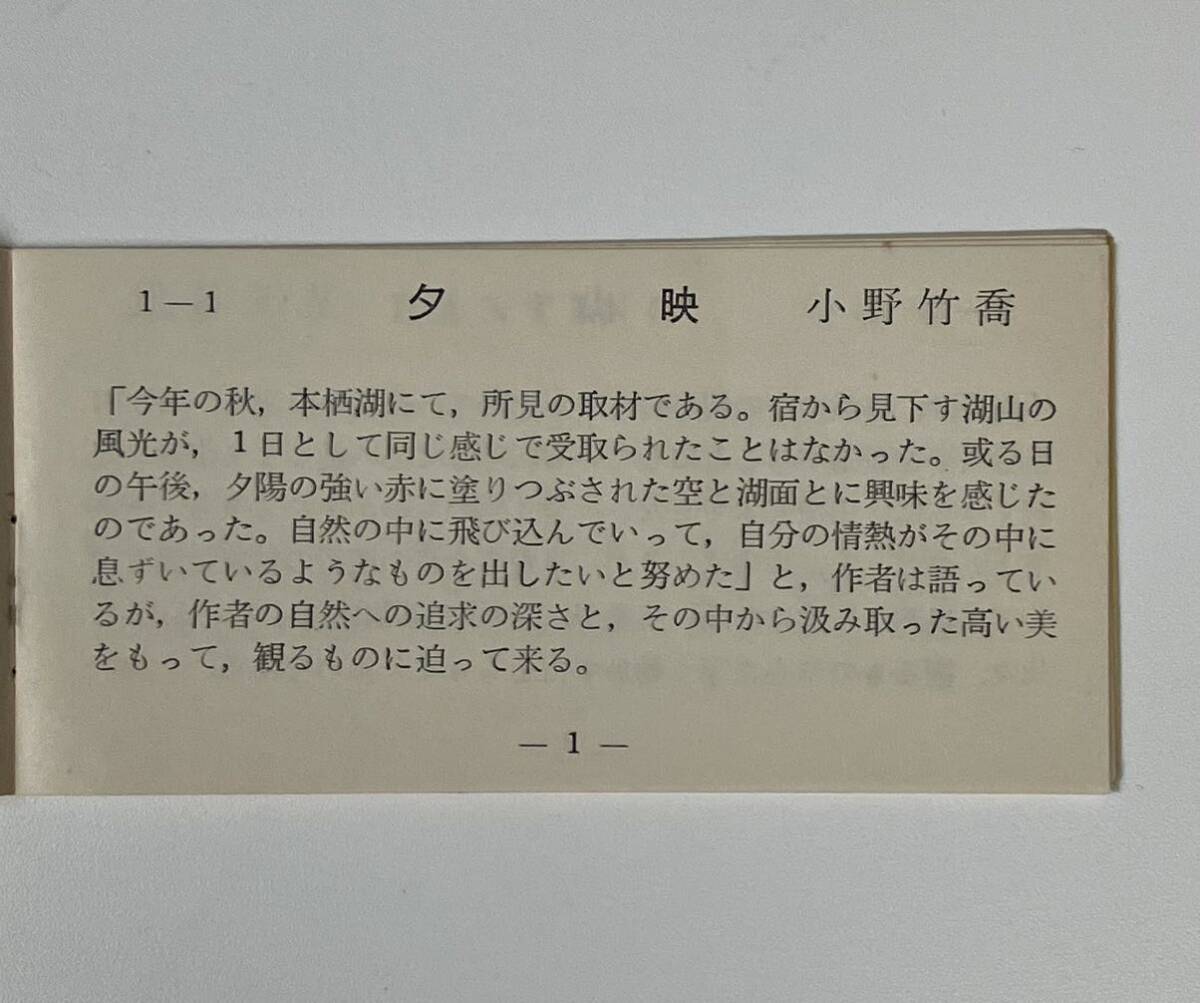 1－1 夕映 小野竹喬
「今年の秋，本栖湖にて，所見の取材である。宿から見下す湖山の
風光が，１日として同じ感じで受取られたことはなかった。或る日
の午後，夕陽の強い赤に塗りつぶされた空と湖面とに興味を感じた
のであった。自然の中に飛び込んでいって，自分の情熱がその中に
息ずいているようなものを出したいと努めた」と，作者は語ってい
るが，作者の自然への追求の深さと，その中から汲み取った高い美
をもって，観るものに迫って来る。
— 1 —